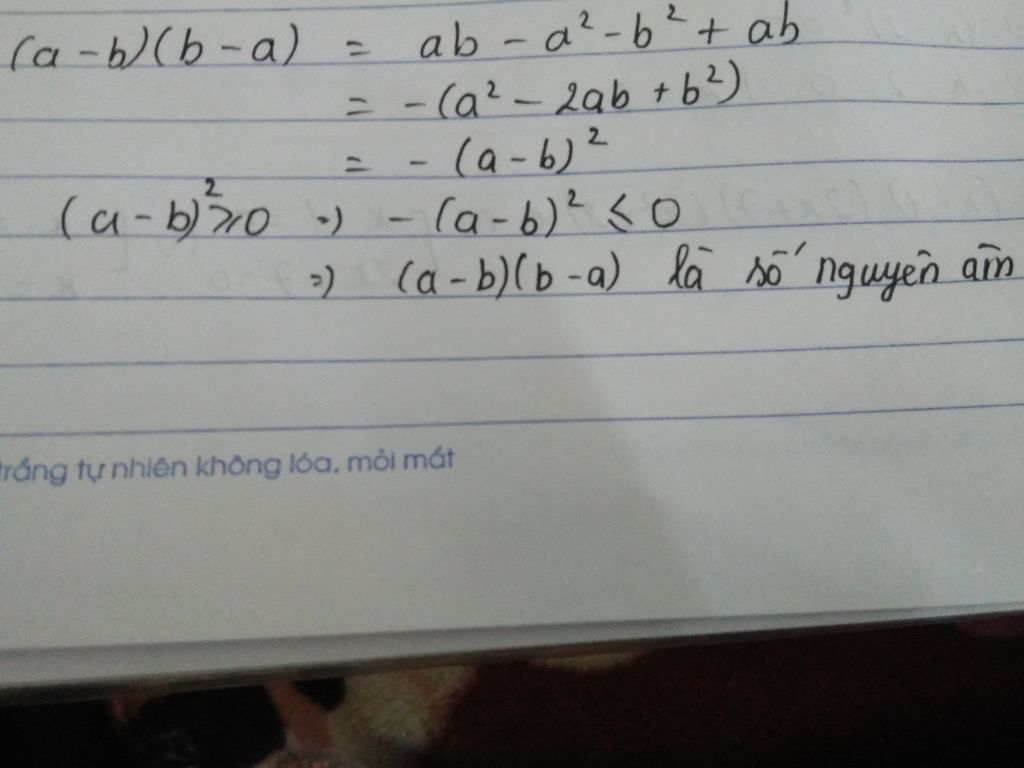 (a - b)(b - a) = ab - a² - b² + ab
= - (a² - 2ab + b²)
= - (a - b)²
(a - b)² ⩾ 0 => - (a - b)² ⩽ 0
=> (a - b)(b - a) là số nguyên âm
trắng tự nhiên không lóa, mỏi mắt